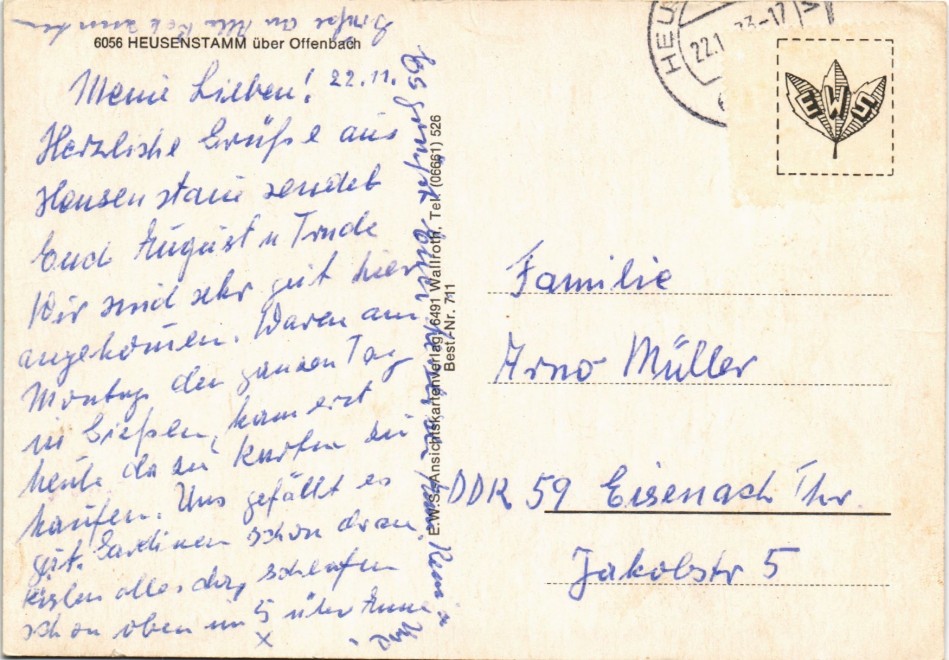 Grüße an Alle Bekannten
6056 HEUSENSTAMM über Offenbach
Meine Lieben! 22.11.
Herzliche Grüße aus
Heusenstam sendet
Euch August u Trude
Wir sind sehr gut hier
angekommen. Waren am
Montag den ganzen Tag
in Gießen, kam erst
heute dazu Karten zu
kaufen. Uns gefällt es
gut. Gardinen schon dran
alles
schon oben um 5 Uhr
Es grüßt Euch
E.W.S.-Ansichtskartenverlag, 6491 Wallroth, Tel. (06661) 526
Best.-Nr. 711
HEU
22.1
73-17
EWS
Familie
Arno Müller
DDR 59 Eisenach Thr.
Jakobstr 5